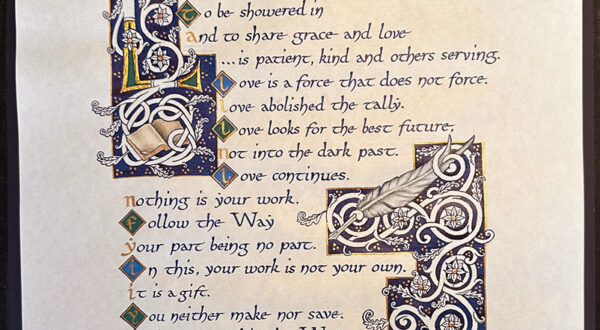 To be showered in
and to share grace and love
...is patient, kind and others serving.
Love is a force that does not force.
love abolished the tally.
Love looks for the best future,
not into the dark past.
Love continues.
nothing is your work.
Follow the Way
your part being no part.
In this, your work is not your own.
it is a gift.
You neither make nor save.